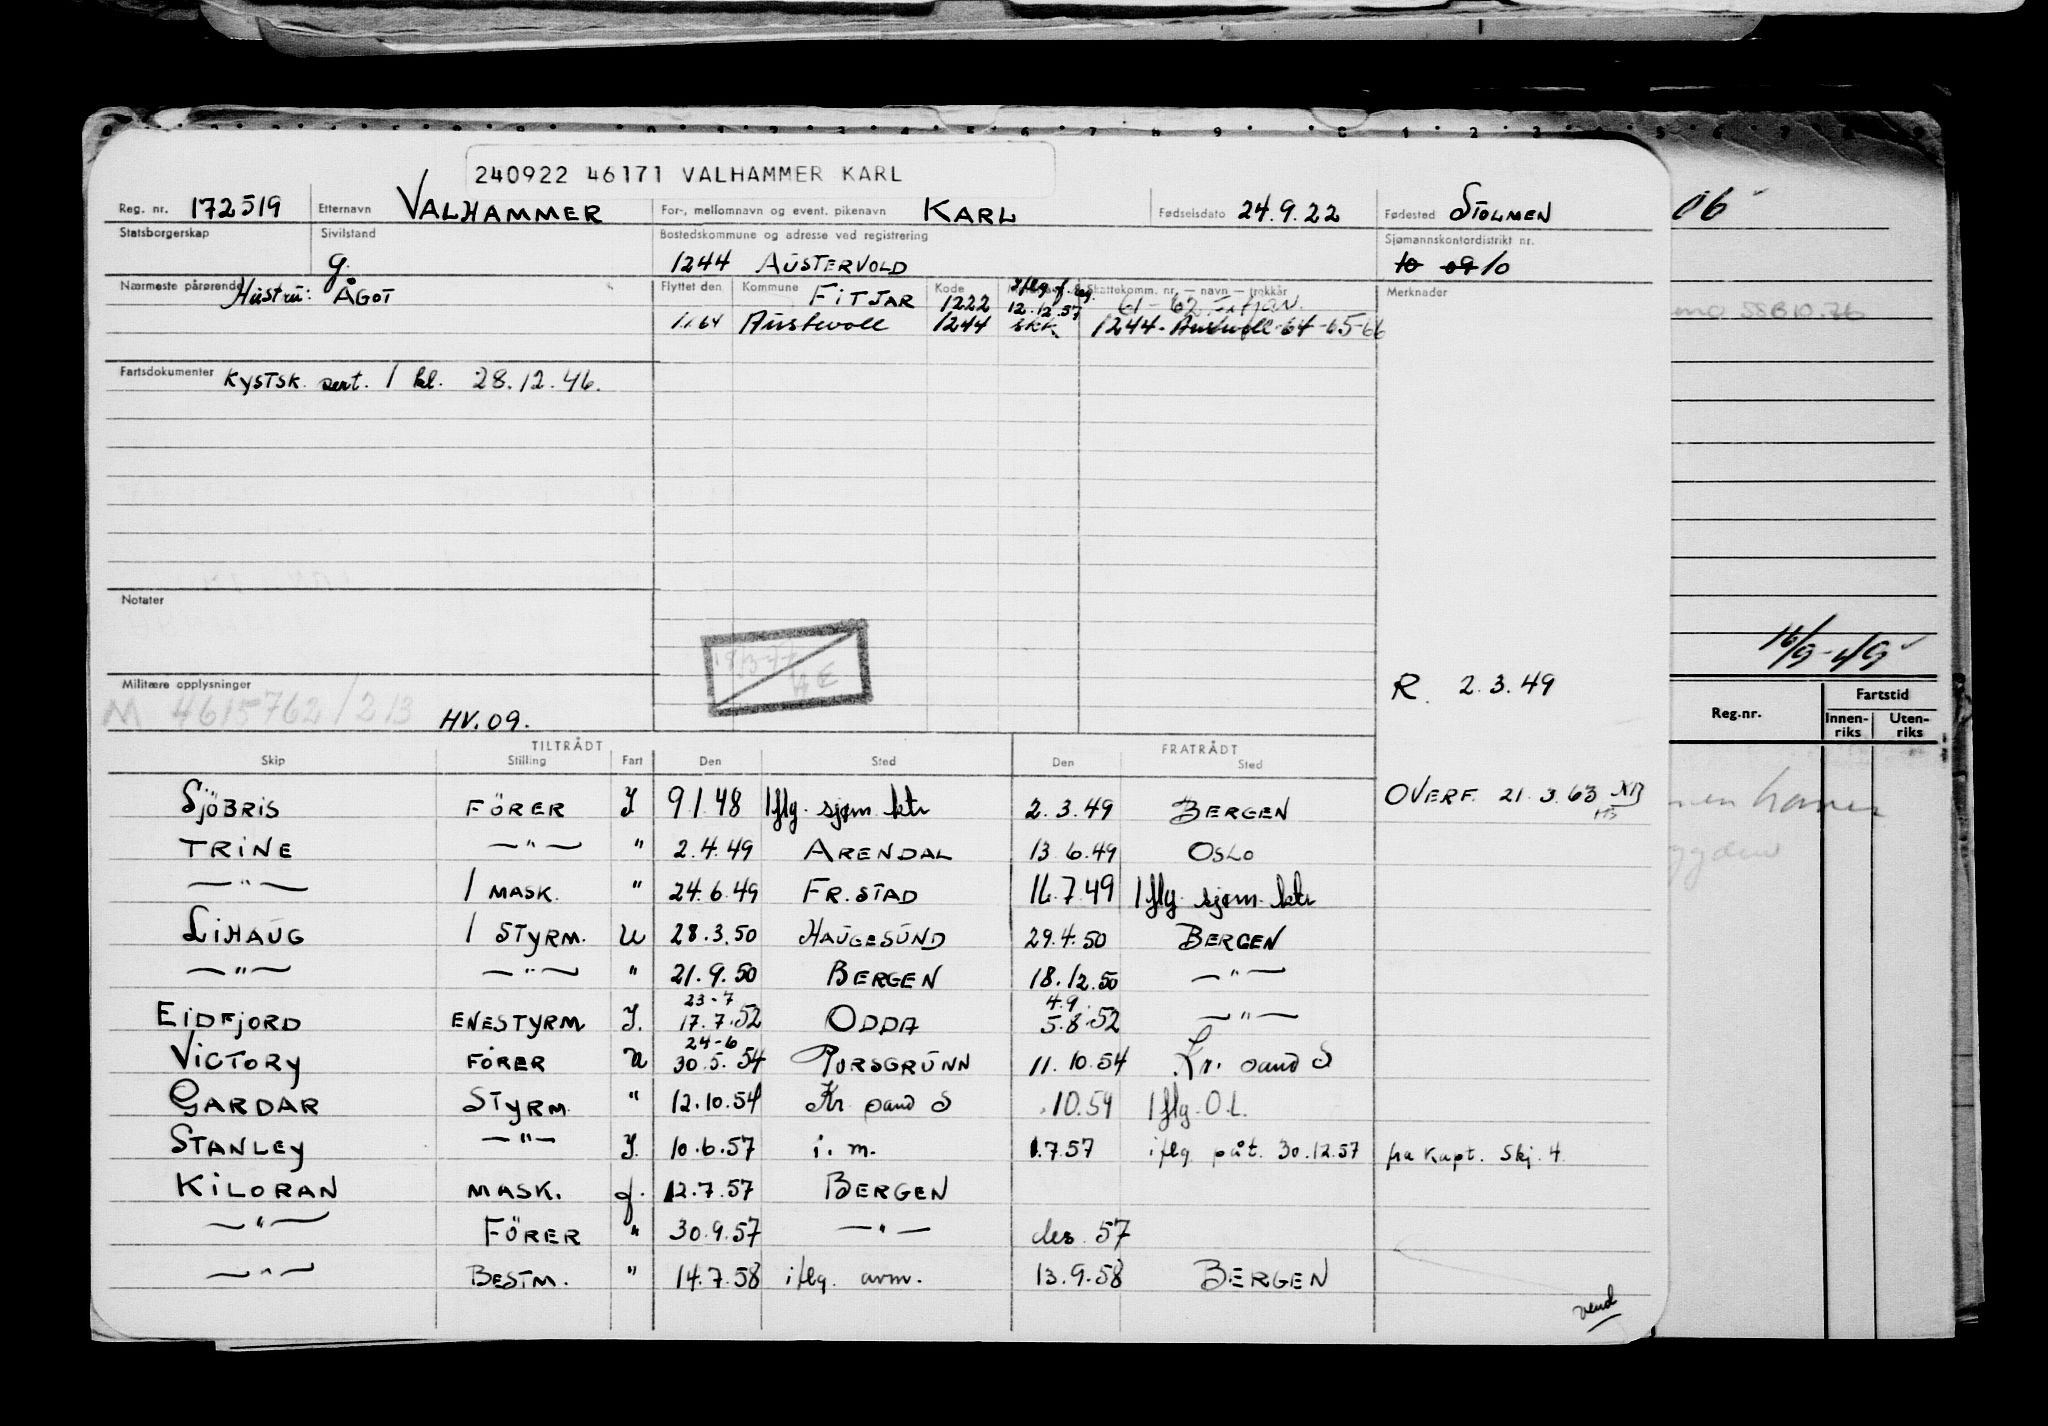 240922 46171 VALHAMMER KARL
Reg. nr. 172519 Etternavn VALHAMMER For-, mellomnavn og event. pikenavn KARL Fødselsdato 24.9.22 Fødested STOLMEN
Statsborgerskap Sivilstand g. Bostedskommune og adresse ved registrering 1244 AUSTERVOLD Sjømannskontordistrikt nr. 10 09 10
Nærmeste pårørende Hustru: ÅGOT Flyttet den Kommune FITJAR Kode 1222 iflg. f. reg. 12.12.57 Skattekomm. nr. — navn — trekkår 61-62 Fitjar. Merknader
1/1 64 Austevoll 1244 skk 1244 - Austevoll 64-65-66
Fartsdokumenter KYSTSK. sert. 1 kl. 28.12.46.
Notater
18/3-77
Militære opplysninger
M 4615762/213 HV.09.
R 2.3.49
TILTRÅDT FRATRÅDT
Skip Stilling Fart Den Sted Den Sted
SJÖBRIS FÖRER I 9 1.48 Iflg. sjøm. ktr 2.3.49 BERGEN OVERF. 21.3.63
TRINE —"— " 2.4.49 ARENDAL 13 6.49 OSLO
—"— 1 MASK. " 24.6.49 FR.STAD 16.7.49 Iflg. sjøm. ktr
LIHAUG 1 STYRM. U 28.3.50 HAUGESUND 29.4.50 BERGEN
—"— —"— " 21.9.50 BERGEN 18.12.50 —"—
23-7 4.9.
EIDFJORD ENESTYRM I. 17.7.52 ODDA 5.8.52 —"—
24-6
VICTORY FÖRER U 30.5.54 PORSGRUNN 11.10.54 Kr. sand S
GARDAR STYRM. " 12.10.54 Kr. sand S .10.54 Iflg. O.L.
STANLEY —"— I. 10.6.57 i. m. 1.7.57 iflg. påt. 30.12.57 fra Kapt. Skj. 4.
KILORAN MASK. f. 12.7.57 BERGEN
—"— FÖRER " 30.9.57 —"— des. 57
—"— BESTM. " 14.7.58 iflg. avm. 13.9.58 BERGEN
vend
06
16/9-49
Reg.nr. Fartstid
Innen-riks Uten-riks